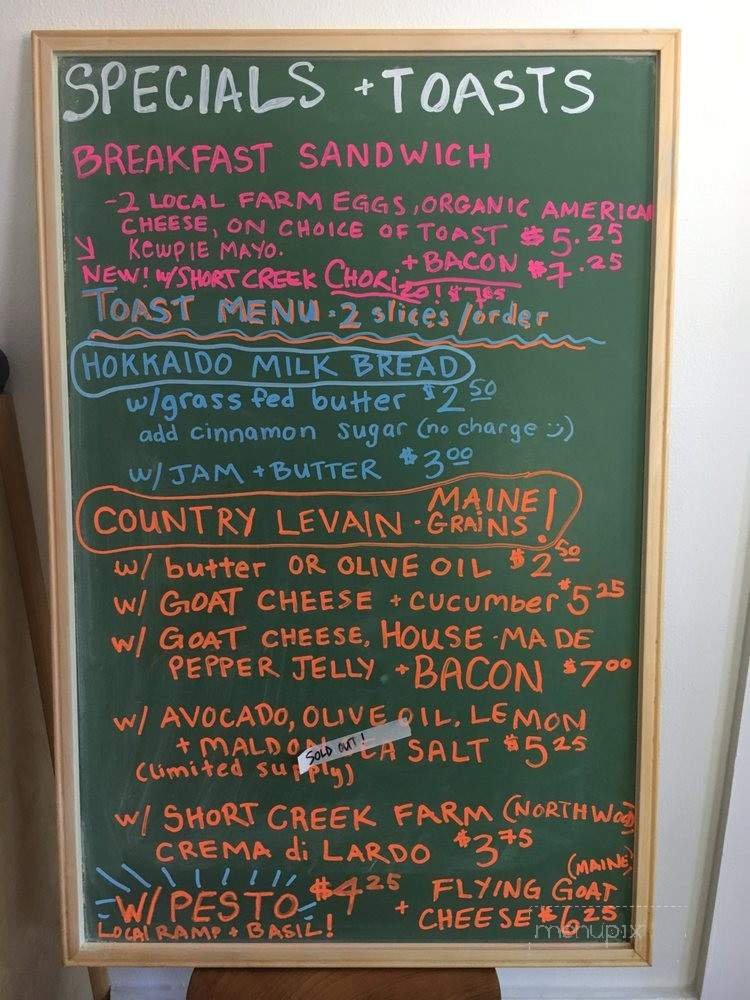 SPECIALS + TOASTS
BREAKFAST SANDWICH
-2 LOCAL FARM EGGS, ORGANIC AMERICAN
CHEESE, ON CHOICE OF TOAST $5.25
KEWPIE MAYO. + BACON $7.25
NEW! W/SHORT CREEK CHORIZO! $7.85
TOAST MENU - 2 slices/order
HOKKAIDO MILK BREAD
w/grass fed butter $2.50
add cinnamon sugar (no charge :))
w/ JAM + BUTTER $3.00
COUNTRY LEVAIN - MAINE GRAINS!
w/ butter OR OLIVE OIL $2.50
w/ GOAT CHEESE + CUCUMBER $5.25
w/ GOAT CHEESE, HOUSE-MADE
PEPPER JELLY + BACON $7.00
w/ AVOCADO, OLIVE OIL, LEMON
+ MALDON SEA SALT $5.25
SOLD OUT!
(limited supply)
w/ SHORT CREEK FARM (NORTHWOOD)
CREMA di LARDO $3.75
W/ PESTO $4.25
LOCAL RAMP + BASIL!
+ FLYING GOAT (MAINE)
CHEESE $6.25
menupix